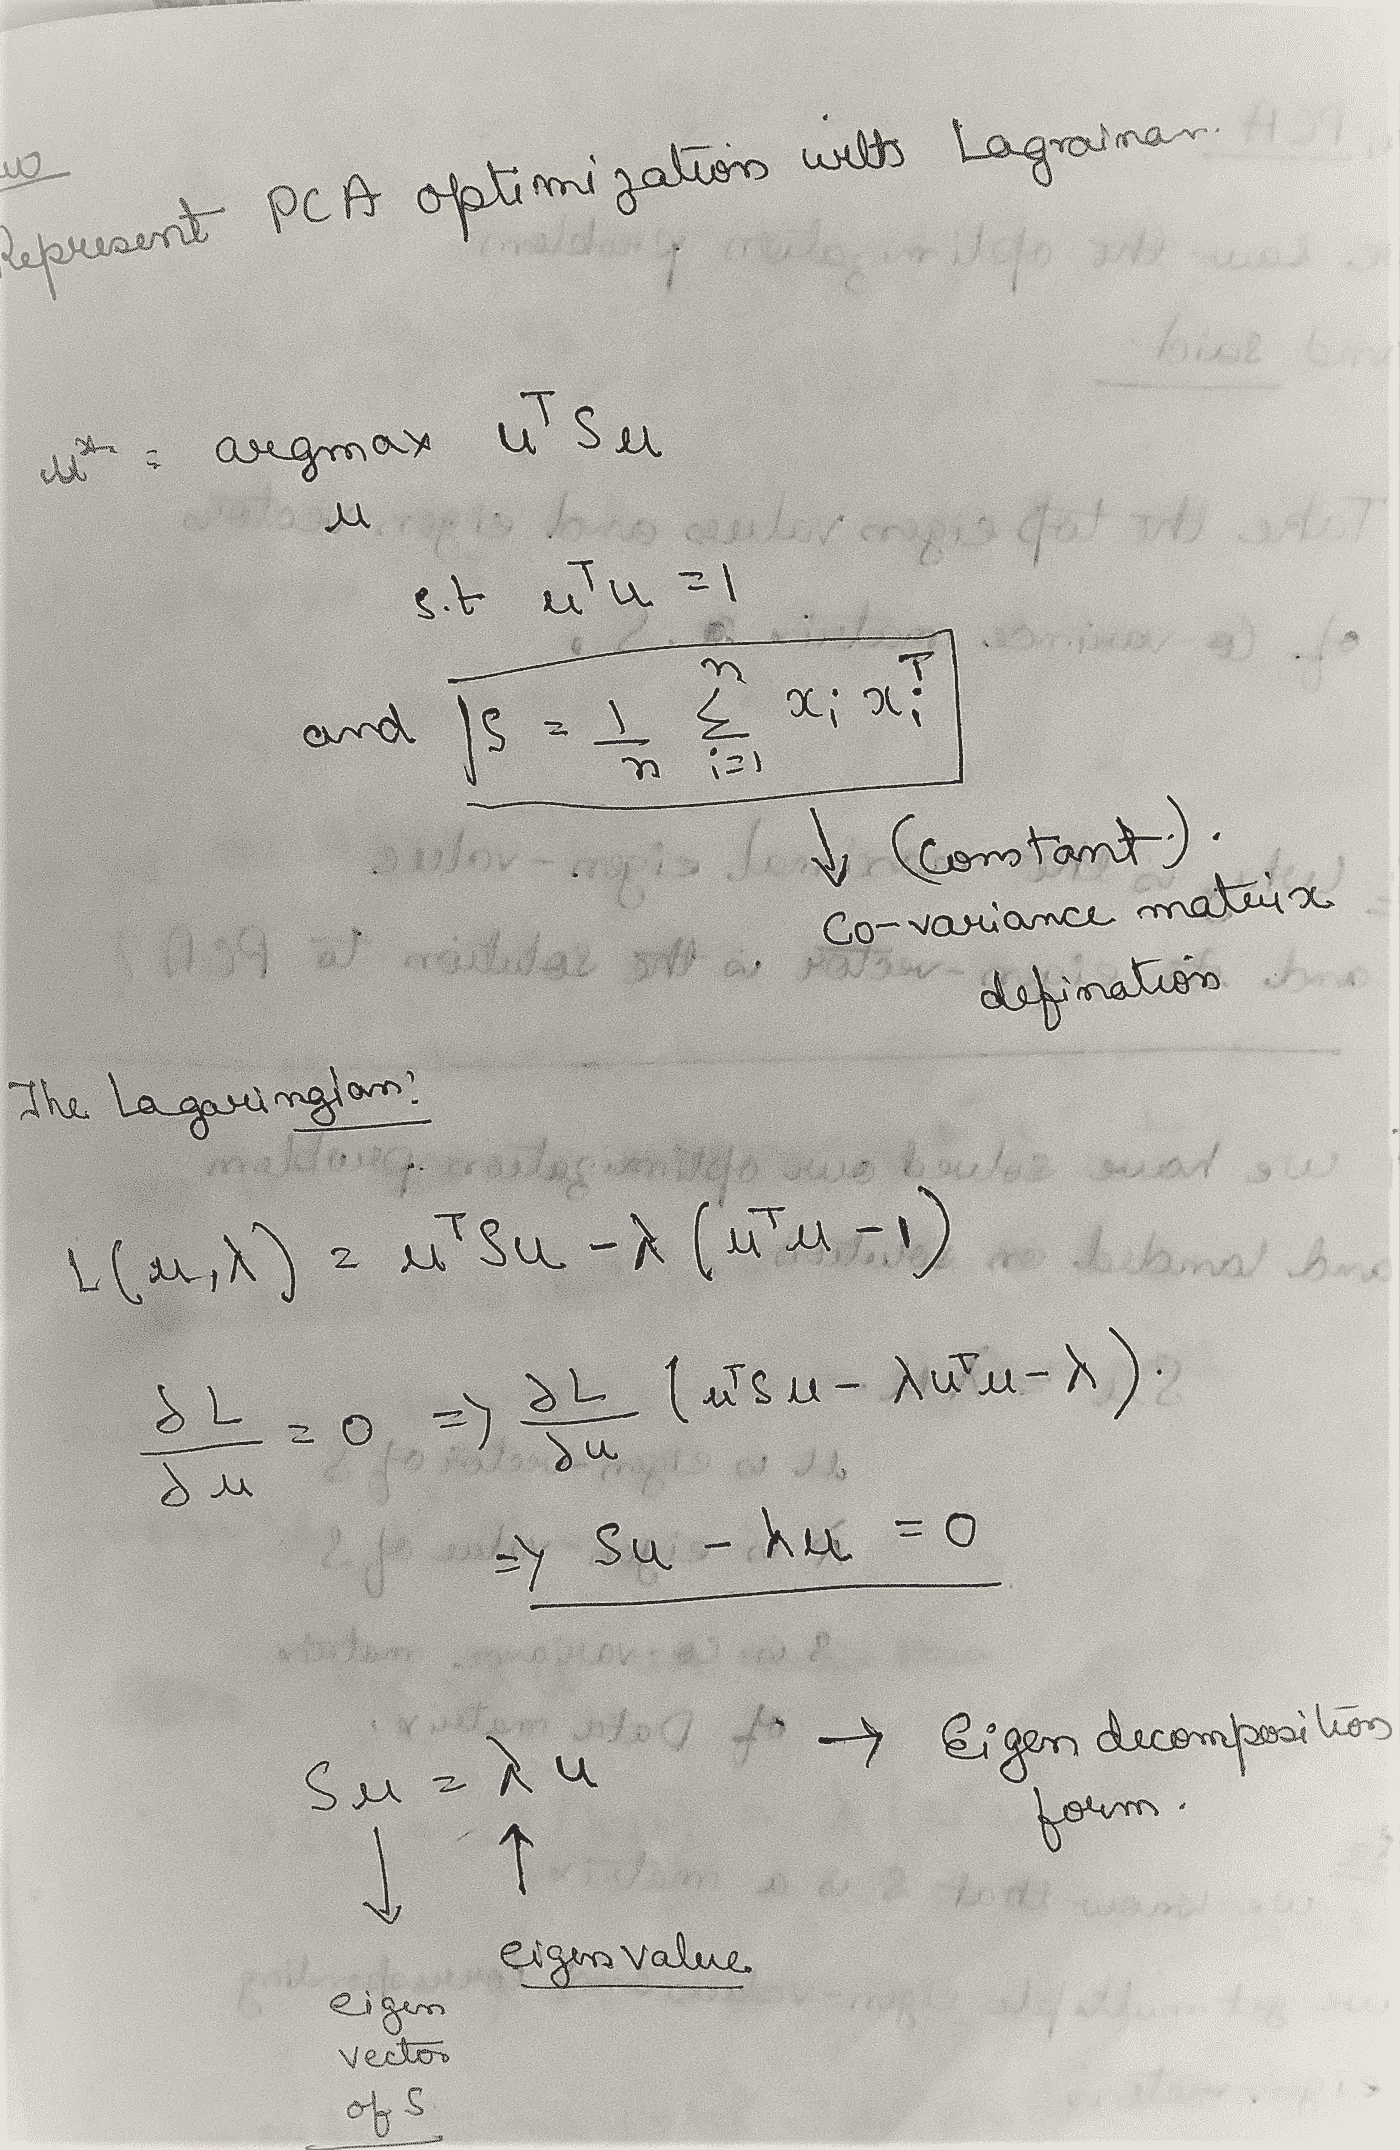 Represent PCA optimization with Lagrainan.
u* = argmax uᵀSu
u
s.t uᵀu = 1
and S = 1/n Σ_{i=1}^{n} xᵢ xᵢᵀ
↓ (constant).
Co-variance matrix
defination
The Lagaringian:
L(u,λ) = uᵀSu - λ (uᵀu - 1)
∂L/∂u = 0 => ∂L/∂u (uᵀSu - λuᵀu - λ).
=> Su - λu = 0
Su = λu → Eigen decomposition
form.
↓ ↑
eigen value
eigen
vector
of S